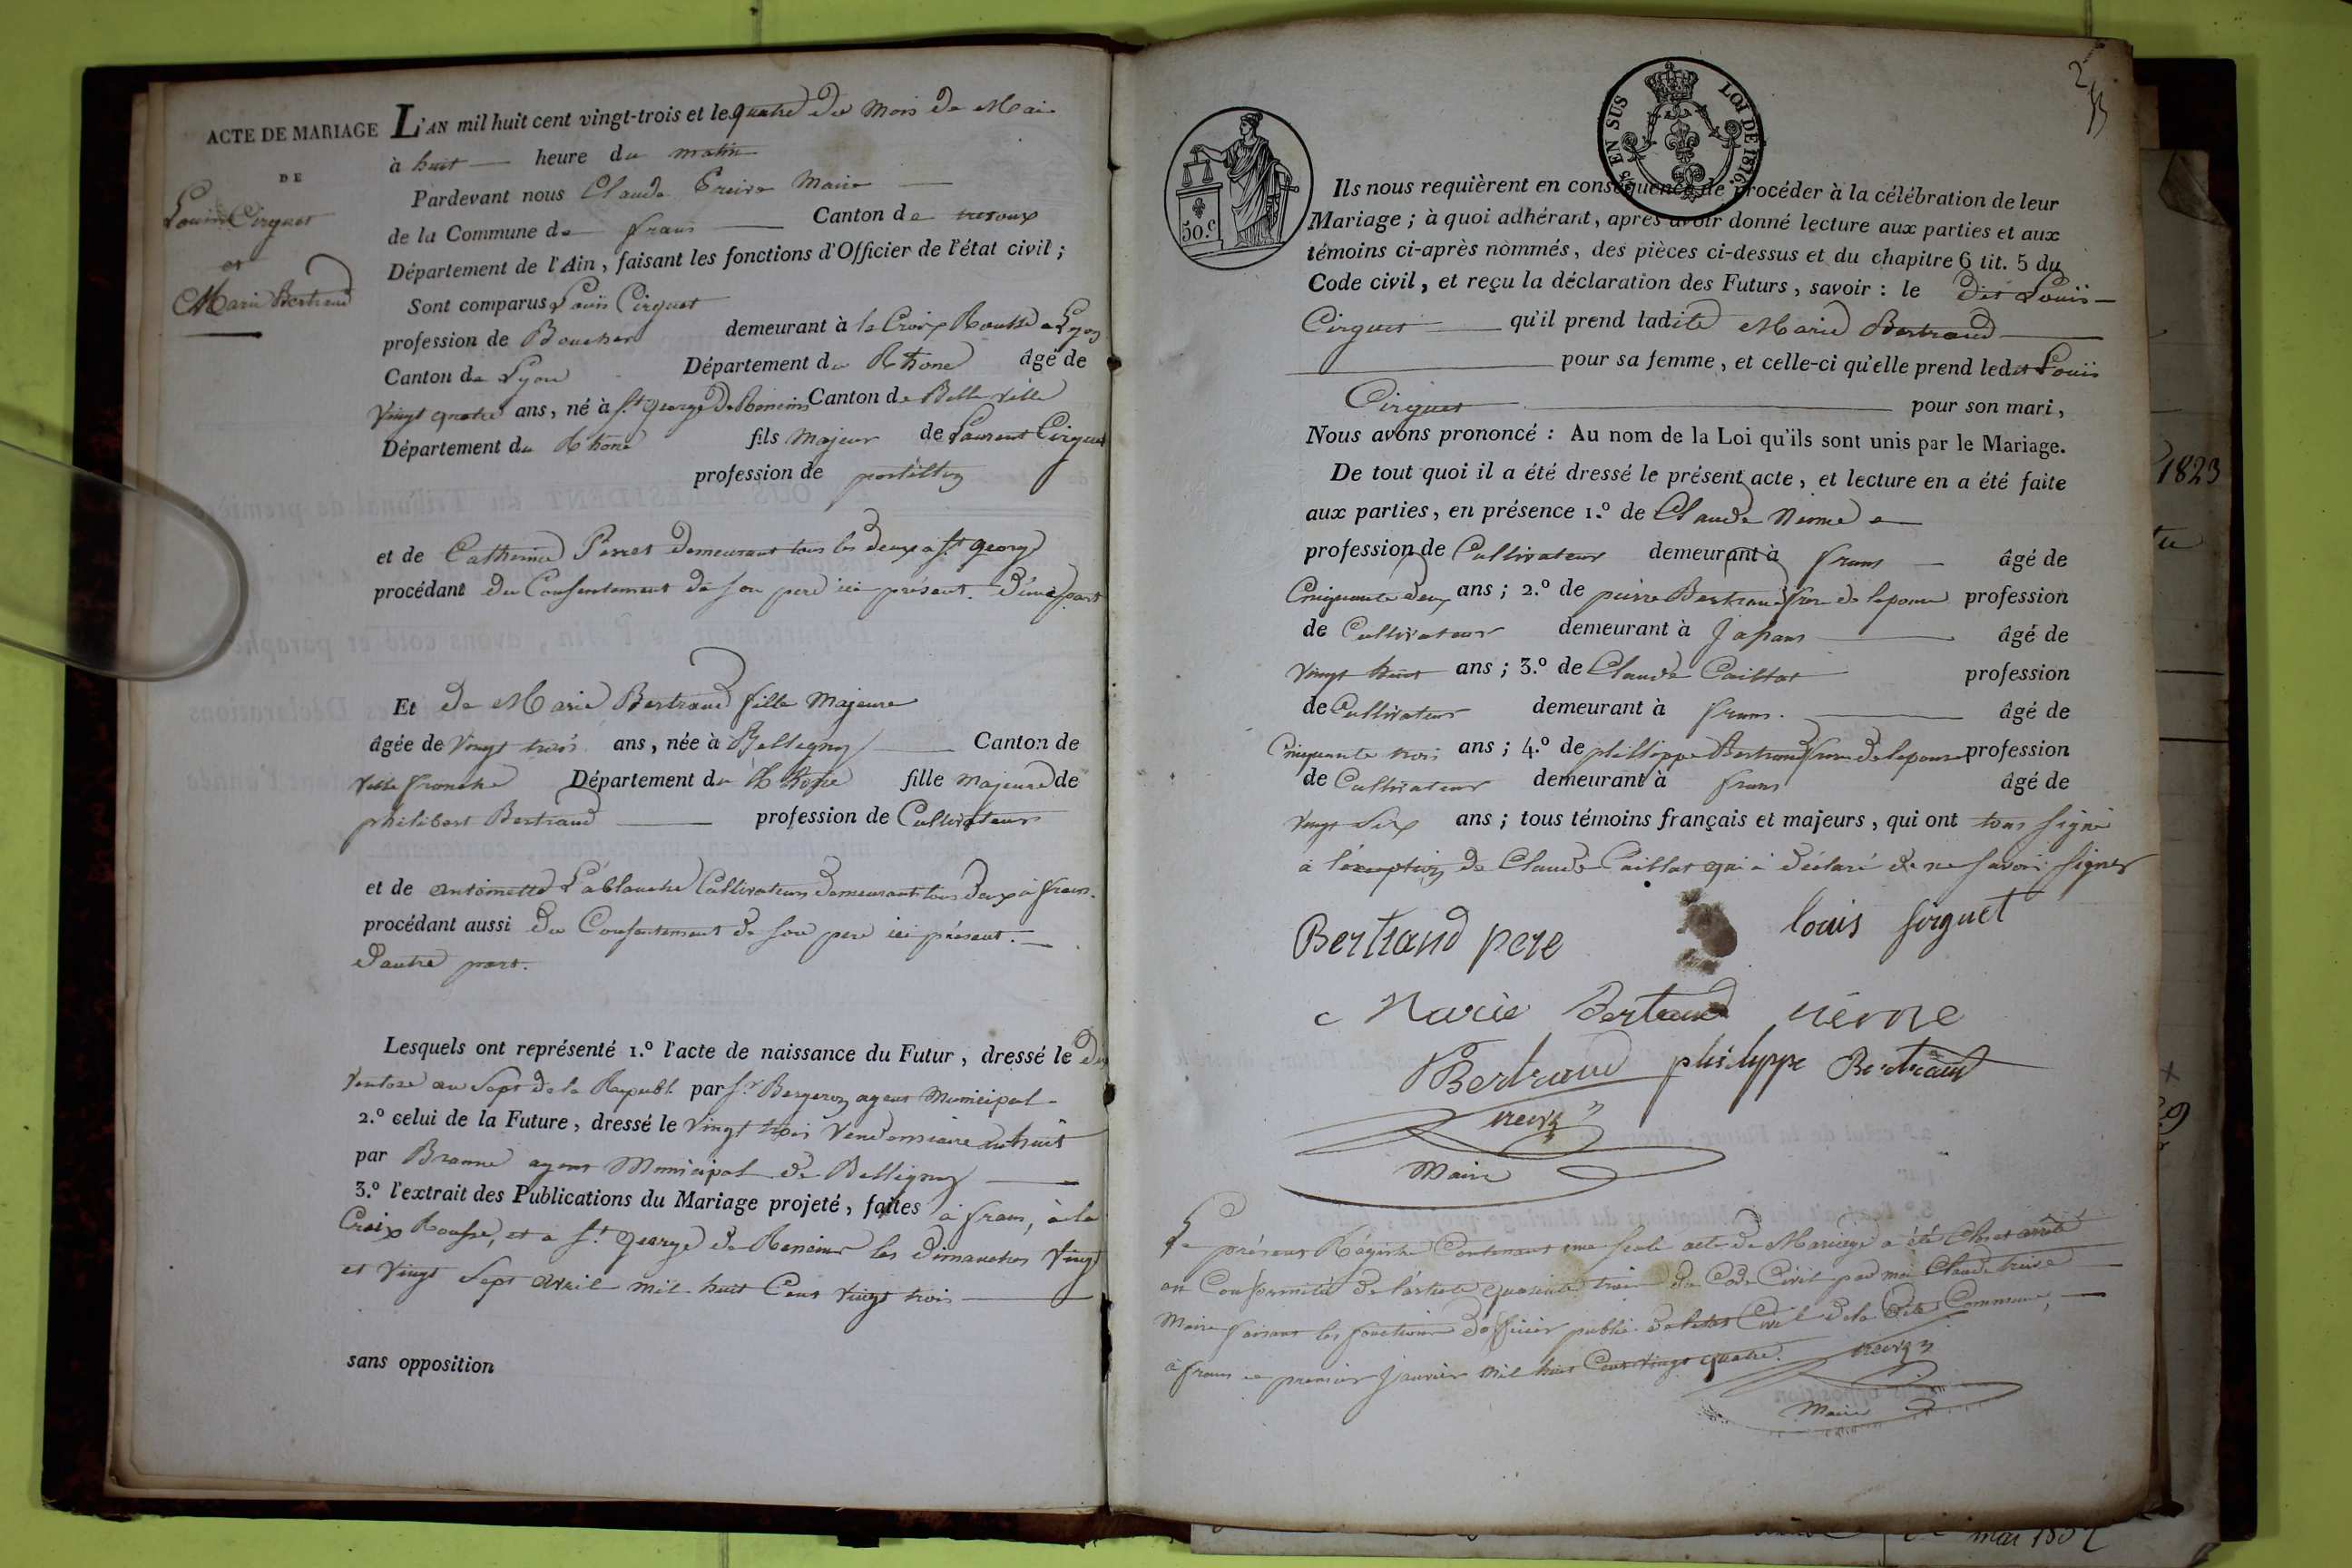 ACTE DE MARIAGE
DE
Louis Cirguet
et
Marie Bertrand
L'AN mil huit cent vingt-trois et le quatre du mois de Mai
à huit heure du matin
Pardevant nous Claude Maire
de la Commune de frans Canton de trevoux
Département de l'Ain, faisant les fonctions d'Officier de l'état civil ;
Sont comparus Louis Cirguet
profession de Boucher demeurant à la Croix Rousse a Lyon
Canton de Lyon Département du Rhone âgé de
Vingt quatre ans, né à St george De Reneins Canton de Belle ville
Département du Rhone fils Majeur de Laurent Cirguet
profession de postillon
et de Catherine Perret demeurant tous les deux a St george
procédant du Consentement de son pere ici présent. d'une part
Et de Marie Bertrand fille Majeure
âgée de Vingt trois ans, née à Belligny Canton de
Ville franche Département du Rhone fille majeure de
philibert Bertrand profession de Cultivateur
et de antoinette Lablanche Cultivateurs demeurant tous deux à frans.
procédant aussi du Consentement de son pere ici présent.
d'autre part.
Lesquels ont représenté 1.º l'acte de naissance du Futur, dressé le
Ventose an Sept de la Republ. par Sr Bergeron agent Municipal
2.º celui de la Future, dressé le Vingt trois Vendemiaire an huit
par agent Municipal de Belligny
3.º l'extrait des Publications du Mariage projeté, faites à frans, à la
Croix Rousse, et a St george de Reneins les dimanches Vingt
et Vingt Sept avril mil huit Cent vingt trois
sans opposition
2
EN SUS
LOI DE 1816
50.c
Ils nous requièrent en conséquence de procéder à la célébration de leur
Mariage ; à quoi adhérant, après avoir donné lecture aux parties et aux
témoins ci-après nommés, des pièces ci-dessus et du chapitre 6 tit. 5 du
Code civil, et reçu la déclaration des Futurs, savoir : le dit Louis
Cirguet qu'il prend ladite Marie Bertrand
pour sa femme, et celle-ci qu'elle prend ledit Louis
Cirguet pour son mari,
Nous avons prononcé : Au nom de la Loi qu'ils sont unis par le Mariage.
De tout quoi il a été dressé le présent acte, et lecture en a été faite
aux parties, en présence 1.º de Claude Neme
profession de Cultivateur demeurant à frans âgé de
Cinquante deux ans ; 2.º de pierre Bertrand frere de lepouse profession
de Cultivateur demeurant à Jassans âgé de
Vingt huit ans ; 3.º de Claude Caillat profession
de Cultivateur demeurant à frans. âgé de
Cinquante trois ans ; 4.º de phillippe Bertrand frere de lepouse profession
de Cultivateur demeurant à frans âgé de
Vingt Six ans ; tous témoins français et majeurs, qui ont tous signé
à l'exception de Claude Caillat qui à déclaré de ne savoir signer
Bertrand pere louis sirguet
Marie Bertrand neme
Bertrand philyppe Bertrand
Maire
Le présent Régistre Contenant une seule acte de Mariage a été Clos et arrêté
en Conformité de l'article quarante trois du Code Civil par moi Claude
Maire faisant les fonctions d'officier public de l'etat Civil de la dite Commune,
à frans ce premier Janvier mil huit Cent vingt quatre.
Maire
1823
mai